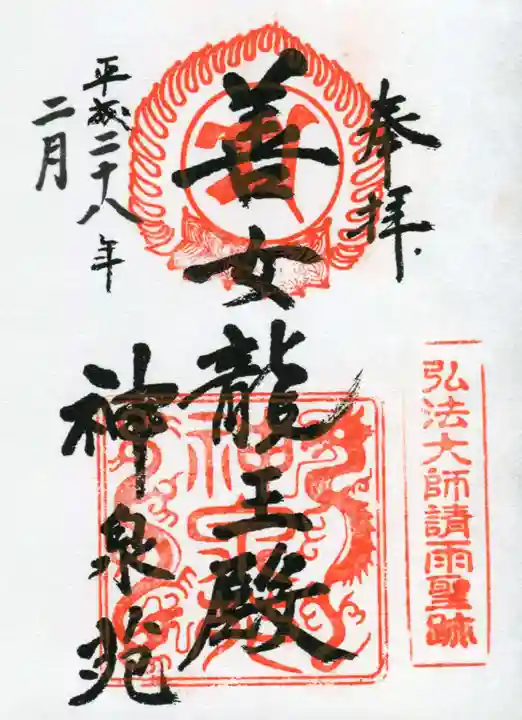 奉拝
弘法大師請雨聖跡
善女龍王殿
平成二十八年
二月
神泉苑